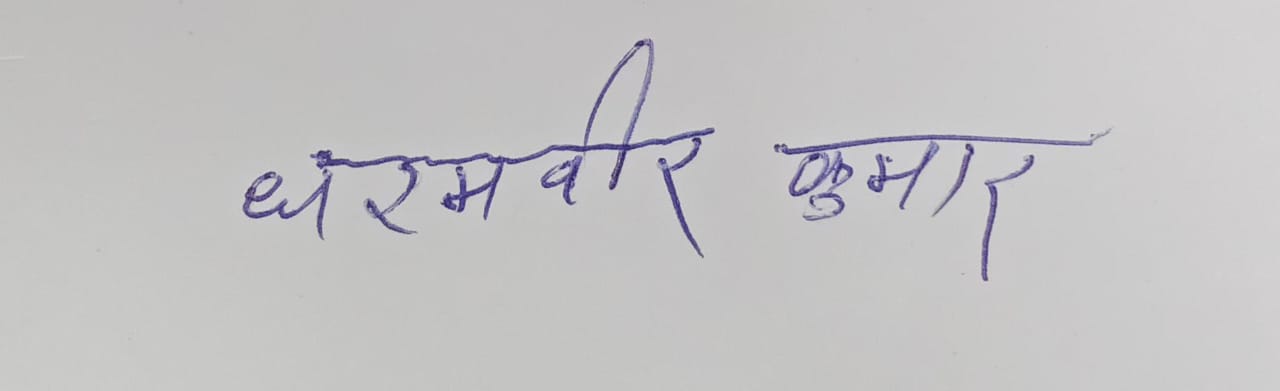 धरमवीर कुमार